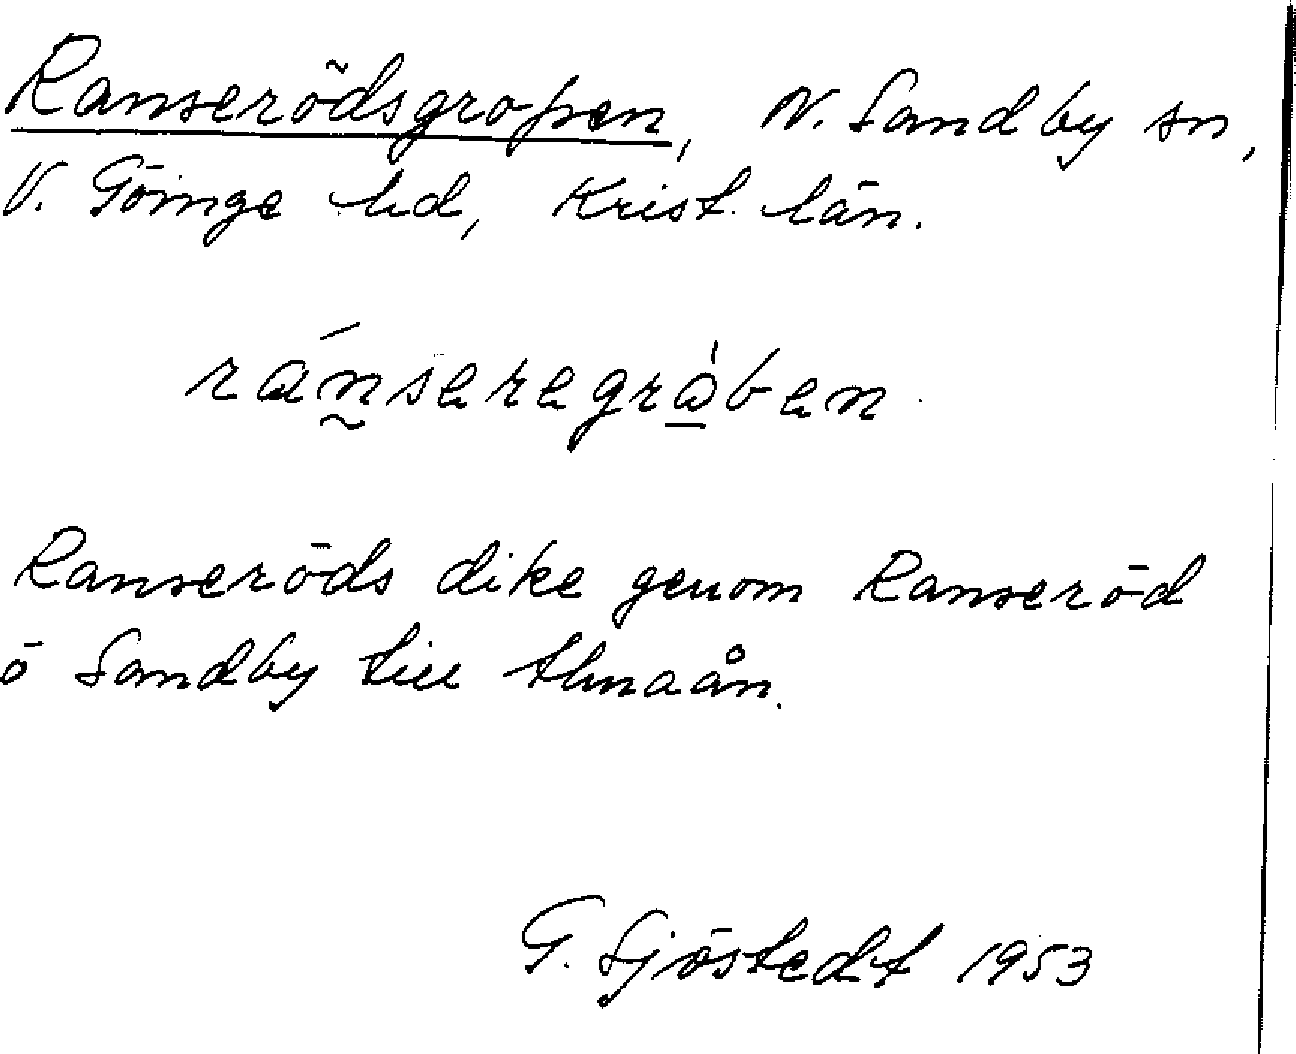 Ranserödsgropen, N. Sandby sn,
V. Göinge hd, Krist. län.
ránseregràben
Ranseröds dike genom Ranseröd
o Sandby till Almaån.
G. Sjöstedt 1953